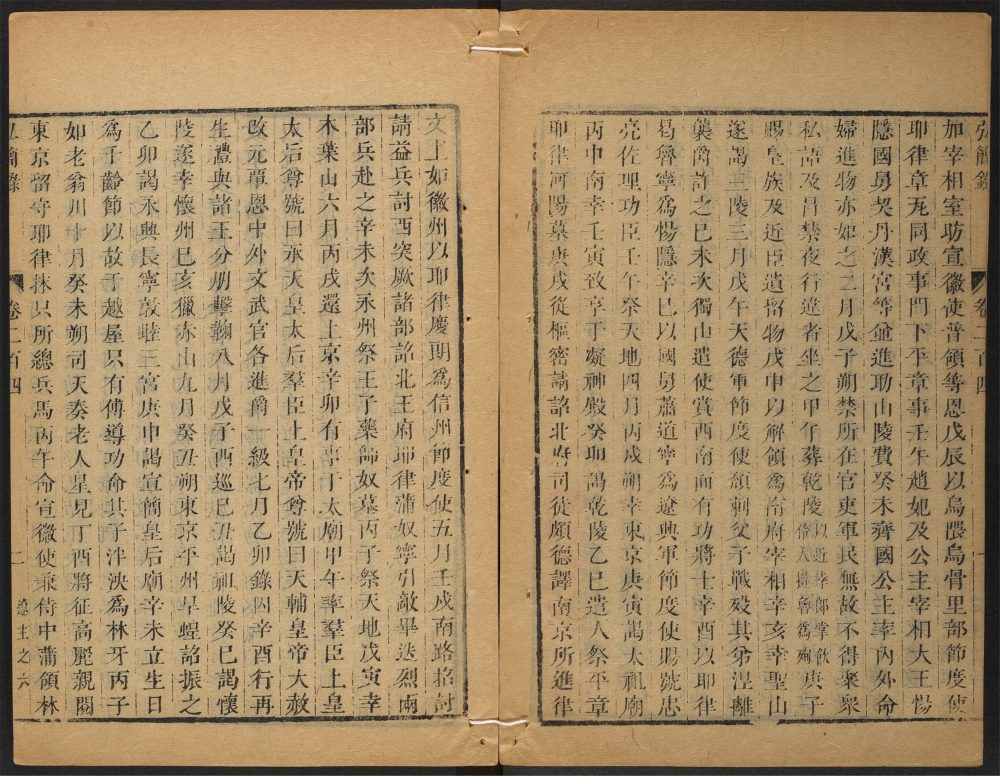 弘簡錄
卷二百四
一
加宰相室昉宣徽使普領等恩戊辰以烏隈烏骨里部節度使
耶律章瓦同政事門下平章事壬午趙妃及公主宰相大王惕
隱國舅契丹漢官等並進助山陵費癸未齊國公主率內外命
婦進物亦如之二月戊子朔禁所在官吏軍民無故不得聚眾
私語及昌禁夜行違者坐之甲午葬乾陵以近幸郎掌飲伶人撻魯為殉庚子
賜皇族及近臣遺留物戊申以解領為南府宰相辛亥幸聖山
遂謁三陵三月戊午天德軍節度使頹剌父子戰歿其弟涅離
襲爵許之己未次獨山遣使賞西南面有功將士辛酉以耶律
曷魯寧為惕隱辛巳以國舅蕭道寧為遼興軍節度使賜號忠
亮佐理功臣壬午祭天地四月丙戌朔幸東京庚寅謁太祖廟
丙申南幸壬寅致享于凝神殿癸卯謁乾陵乙巳遣人祭平章
耶律河陽墓庚戌從樞密請詔北府司徒頗德譯南京所進律
文上如徽州以耶律慶朗為信州節度使五月壬戌南路招討
請益兵討西突厥諸部詔北王府耶律蒲奴寧引敵畢迭烈兩
部兵赴之辛未次永州祭王子藥師奴墓丙子祭天地戊寅幸
木葉山六月丙戌還上京辛卯有事于太廟甲午率羣臣上皇
太后尊號曰承天皇太后羣臣上皇帝尊號曰天輔皇帝大赦
改元覃恩中外文武官各進爵一級七月乙卯錄囚辛酉行再
生禮與諸王分朋擊鞠八月戊子西巡己丑謁祖陵癸巳謁懷
陵遂幸懷州己亥獵赤山九月癸丑朔東京平州旱蝗詔振之
乙卯謁永興長寧敦睦三宮庚申謁宣簡皇后廟辛未立生日
為千齡節以故于越屋只有傅導功命其子泮泱為林牙丙子
如老翁川十月癸未朔司天奏老人星見丁酉將征高麗親閱
東京留守耶律抹只所總兵馬丙午命宣徽使兼侍中蒲領林
弘簡錄
卷二百四
二
遼主之六